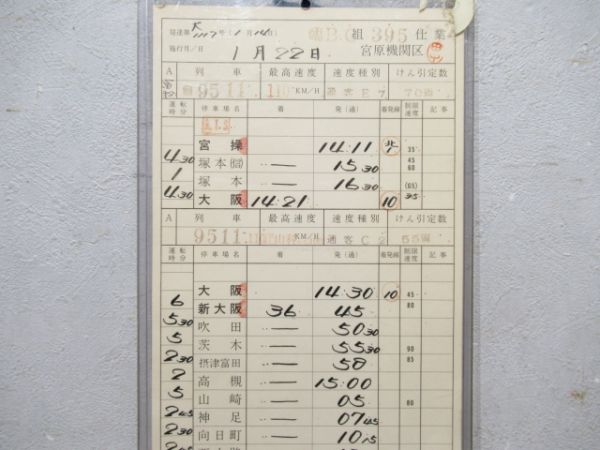 B.C 組 395 仕業
施行月/日 1月22日 宮原機関区
A 列車 最高速度 速度種別 けん引定数
9511 110 KM/H 通客 E 7 70
運転時分 停車場名 着 発(通) 着発線 制限速度 記事
宮操 14.11 北1 35
4 30 塚本(信) — 15 30 45 60
1 塚本 — 16 30 (65)
4 30 大阪 14.21 10 35
A 列車 最高速度 速度種別 けん引定数
9511 KM/H 通客 C 2 55
運転時分 停車場名 着 発(通) 着発線 制限速度 記事
大阪 14.30 10 45
6 新大阪 36 45 80
5 30 吹田 — 50 30
5 茨木 — 55 30 90
2 30 摂津富田 — 58 85
2 高槻 — 15.00
5 山崎 — 05 80
2 45 神足 — 07 45
2 30 向日町 — 10 15
2 45